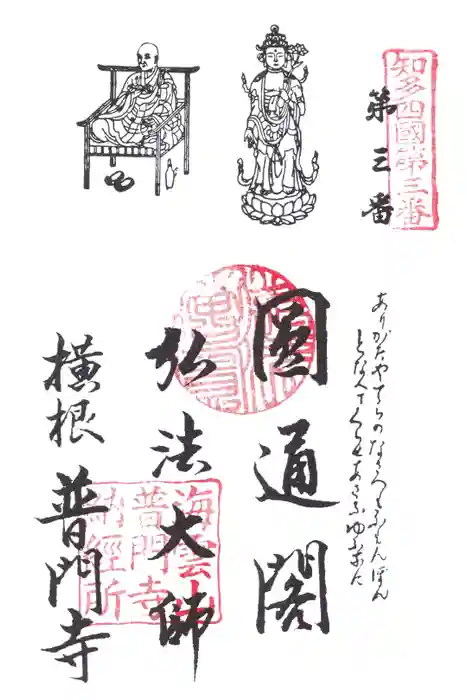 知多四國第三番
第三番
ありがたやてらのなさへもふもんぼん
となへてくらせあさなゆふなに
圓通閣
弘法大師
横根
普門寺
海雲山
普門寺
納經所